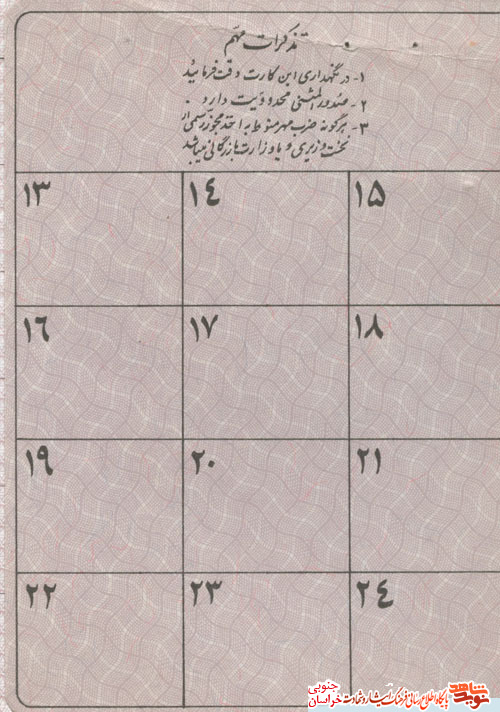 تذکرات مهم
۱- در نگهداری این کارت دقت فرمایید
۲- صدور المثنی محدودیت دارد.
۳- هرگونه ضرب مهر منوط به اخذ مجوز رسمی از
نخست وزیری و یا وزارت بازرگانی میباشد
۱۳ ۱٤ ۱۵
۱٦ ۱۷ ۱۸
۱۹ ۲۰ ۲۱
۲۲ ۲۳ ۲٤
نوید شاهد
پایگاه اطلاع رسانی فرهنگ ایثار و شهادت
خراسان جنوبی